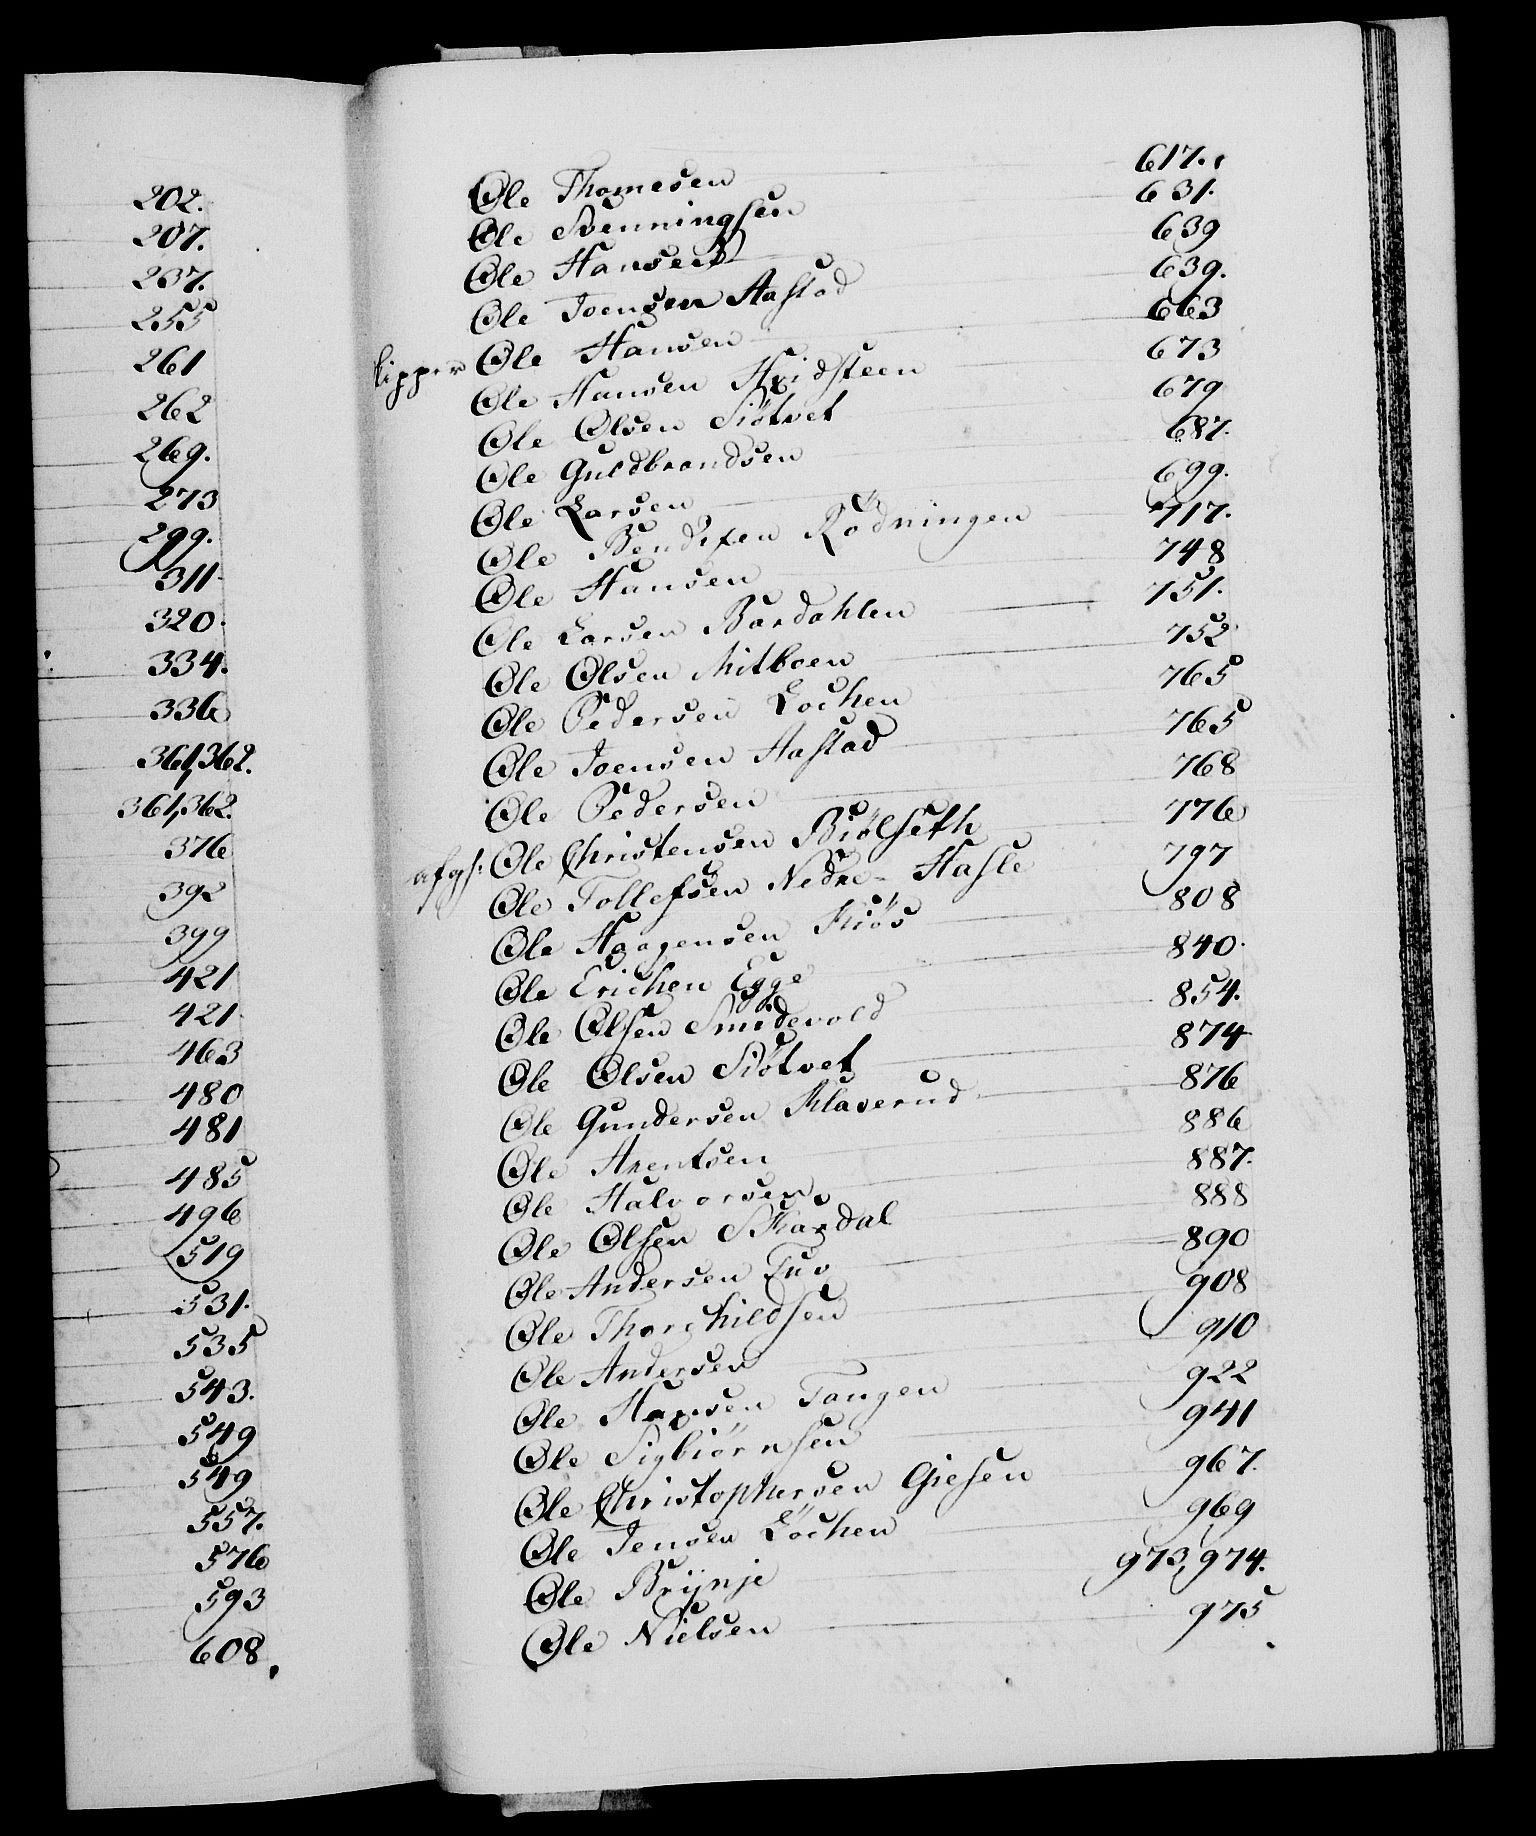 202.
207.
237.
255
261
262
269.
273
299.
311
320.
334.
336
361,362.
361,362.
376
392
399
421
421
463
480
481
485
496
519
531.
535
543.
549
549
557.
576
593
608.
Ole Thomesen 617.
Ole Svenningsen 631.
Ole Hansen 639
Ole Joensen Aastad 639.
Ole Hansen 663
Ole Hansen Hvidsteen 673
Ole Olsen Siötvet 679
Ole Guldbrandsen 687.
Ole Larsen 699.
Ole Bendixen Rödningen 717.
Ole Hansen 748
Ole Larsen Bardahlen 751.
Ole Olsen Mitboen 752
Ole Pedersen Lochen 765
Ole Joensen Aastad 765
Ole Pedersen 768
afgl: Ole Christensen Biölseth 776
Ole Tollefsen Nedre Hasle 797
Ole Haagensen Kiös 808
Ole Erichen Egge 840.
Ole Olsen Smidevold 854.
Ole Olsen Siötvet 874
Ole Gundersen Klaverud 876
Ole Arentsen 886
Ole Halvorsen 887.
Ole Olsen Skardal 888
Ole Andersen Tuv 890
Ole Thorchildsen 908
Ole Andersen 910
Ole Hansen Tangen 922
Ole Sigbiörnsen 941
Ole Christophersen Giesen 967.
Ole Jensen Löchen 969
Ole Brÿnje 973,974.
Ole Nielsen 975